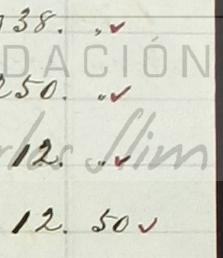 38. „ ✓
DACIÓN
250. „ ✓
12. „ ✓
Slim
12. 50 ✓